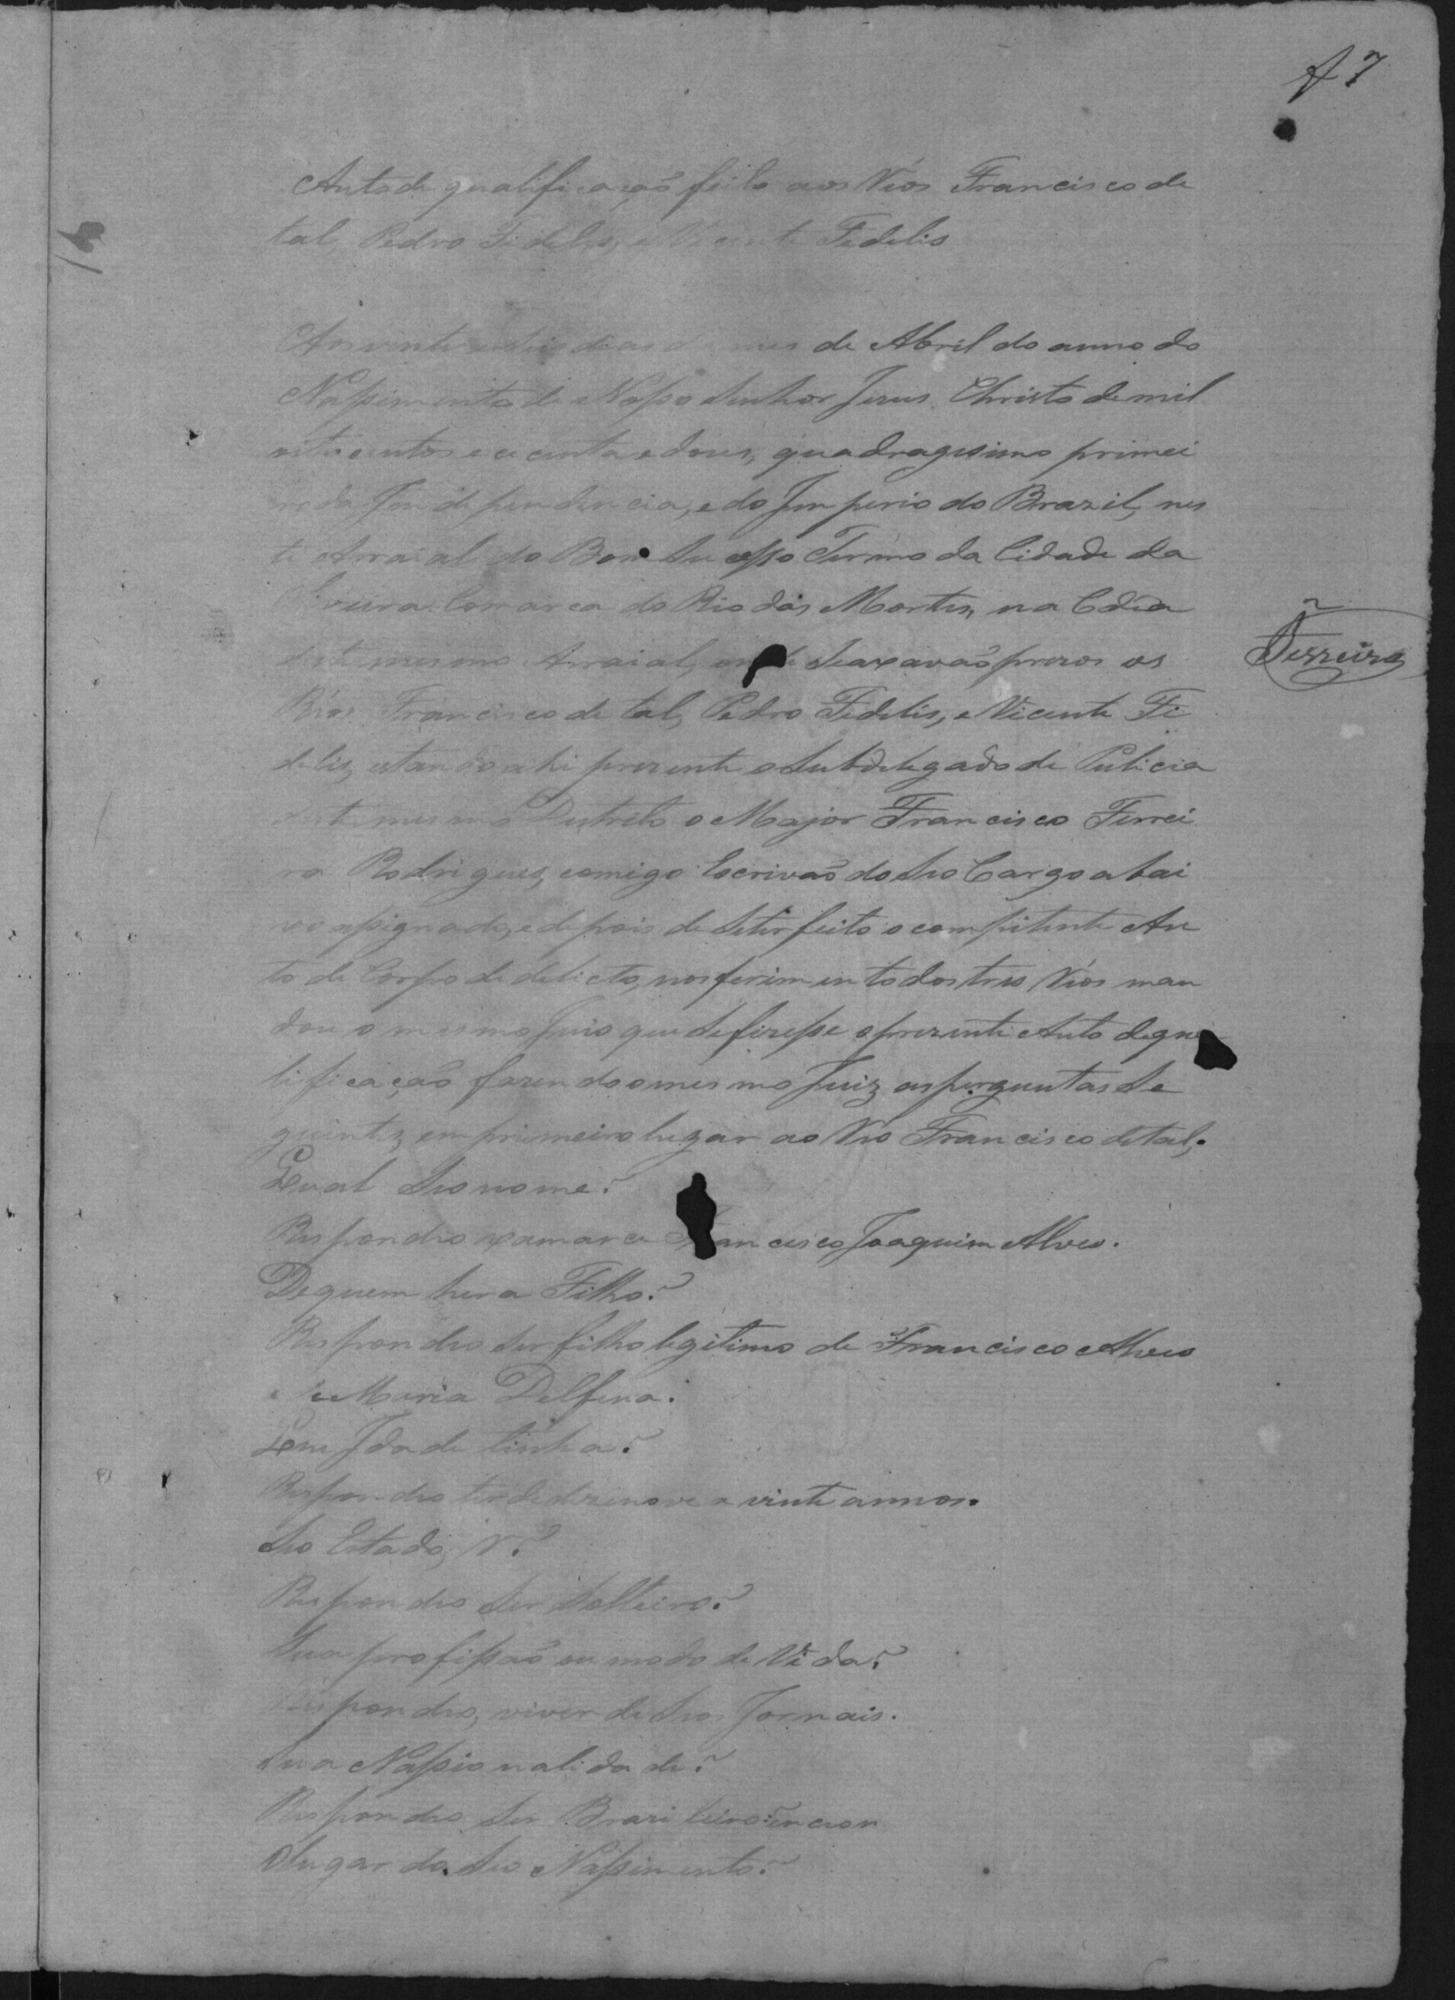 f 7
Auto de qualificação feito aos Réos Francisco de
tal, Pedro Fidelis, e Vicente Fidelis
Aos vinte dias do mes de Abril do anno do
Nassimento de Nosso Senhor Jezus Christo de mil
oito centos e cecenta e dous, quadragesimo primei
ro da Independencia, e do Imperio do Brazil, nes
te Arraial do Bom Sucesso Termo da Cidade da
Comarca do Rio das Mortes, na Cadea
deste mesmo Arraial, onde se axavão prezos os
Réos Francisco de tal, Pedro Fidelis, e Vicente Fi
delis, estando ahi prezente o Subdelegado de Policia
deste mesmo Destreto o Major Francisco Ferrei
ra Rodrigues, comigo Escrivão do seo Cargo abai
xo assignado, e depois de se ter feito o competente Au
to de Corpo de delicto, nos ferimento dos tres Réos man
dou o mesmo Juis que se fizesse o prezente Auto de qua
lificação fazendo o mesmo Juiz as perguntas se
guintes, em primeiro lugar ao Réo Francisco de tal,.
Qual seo nome?
Respondeo xamar ce Francisco Joaquim Alves.
De quem hera Filho?
Respondeo ser filho legitimo de Francisco Alves
e de Maria Delfina.
Que Idade tinha?
Respondeo ter de dezenove a vinte annos.
Seo Estado,
Respondeo ser Solteiro?
Sua profissão ou modo de Vida?
Respondeo, viver de seos Jornais.
Sua Nassionalidade?
Respondeo ser Brazileiro
O lugar do seo Nassimento?
Ferreira